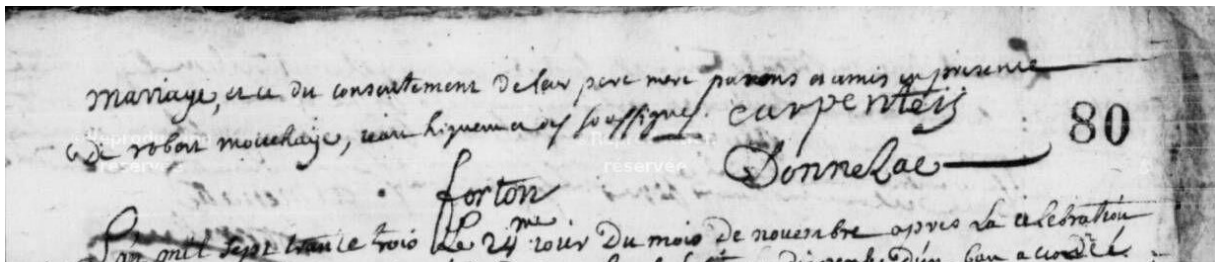 mariage, et ce du consentement de leur pere mere parens et amis en presence
de robert mouchaije, jean et des soussignes. carpenteis
80
Donnelae
forton
L'an mil sept trante trois Le 24me jour Du mois de novembre apres La celebration
d'un ban accordé